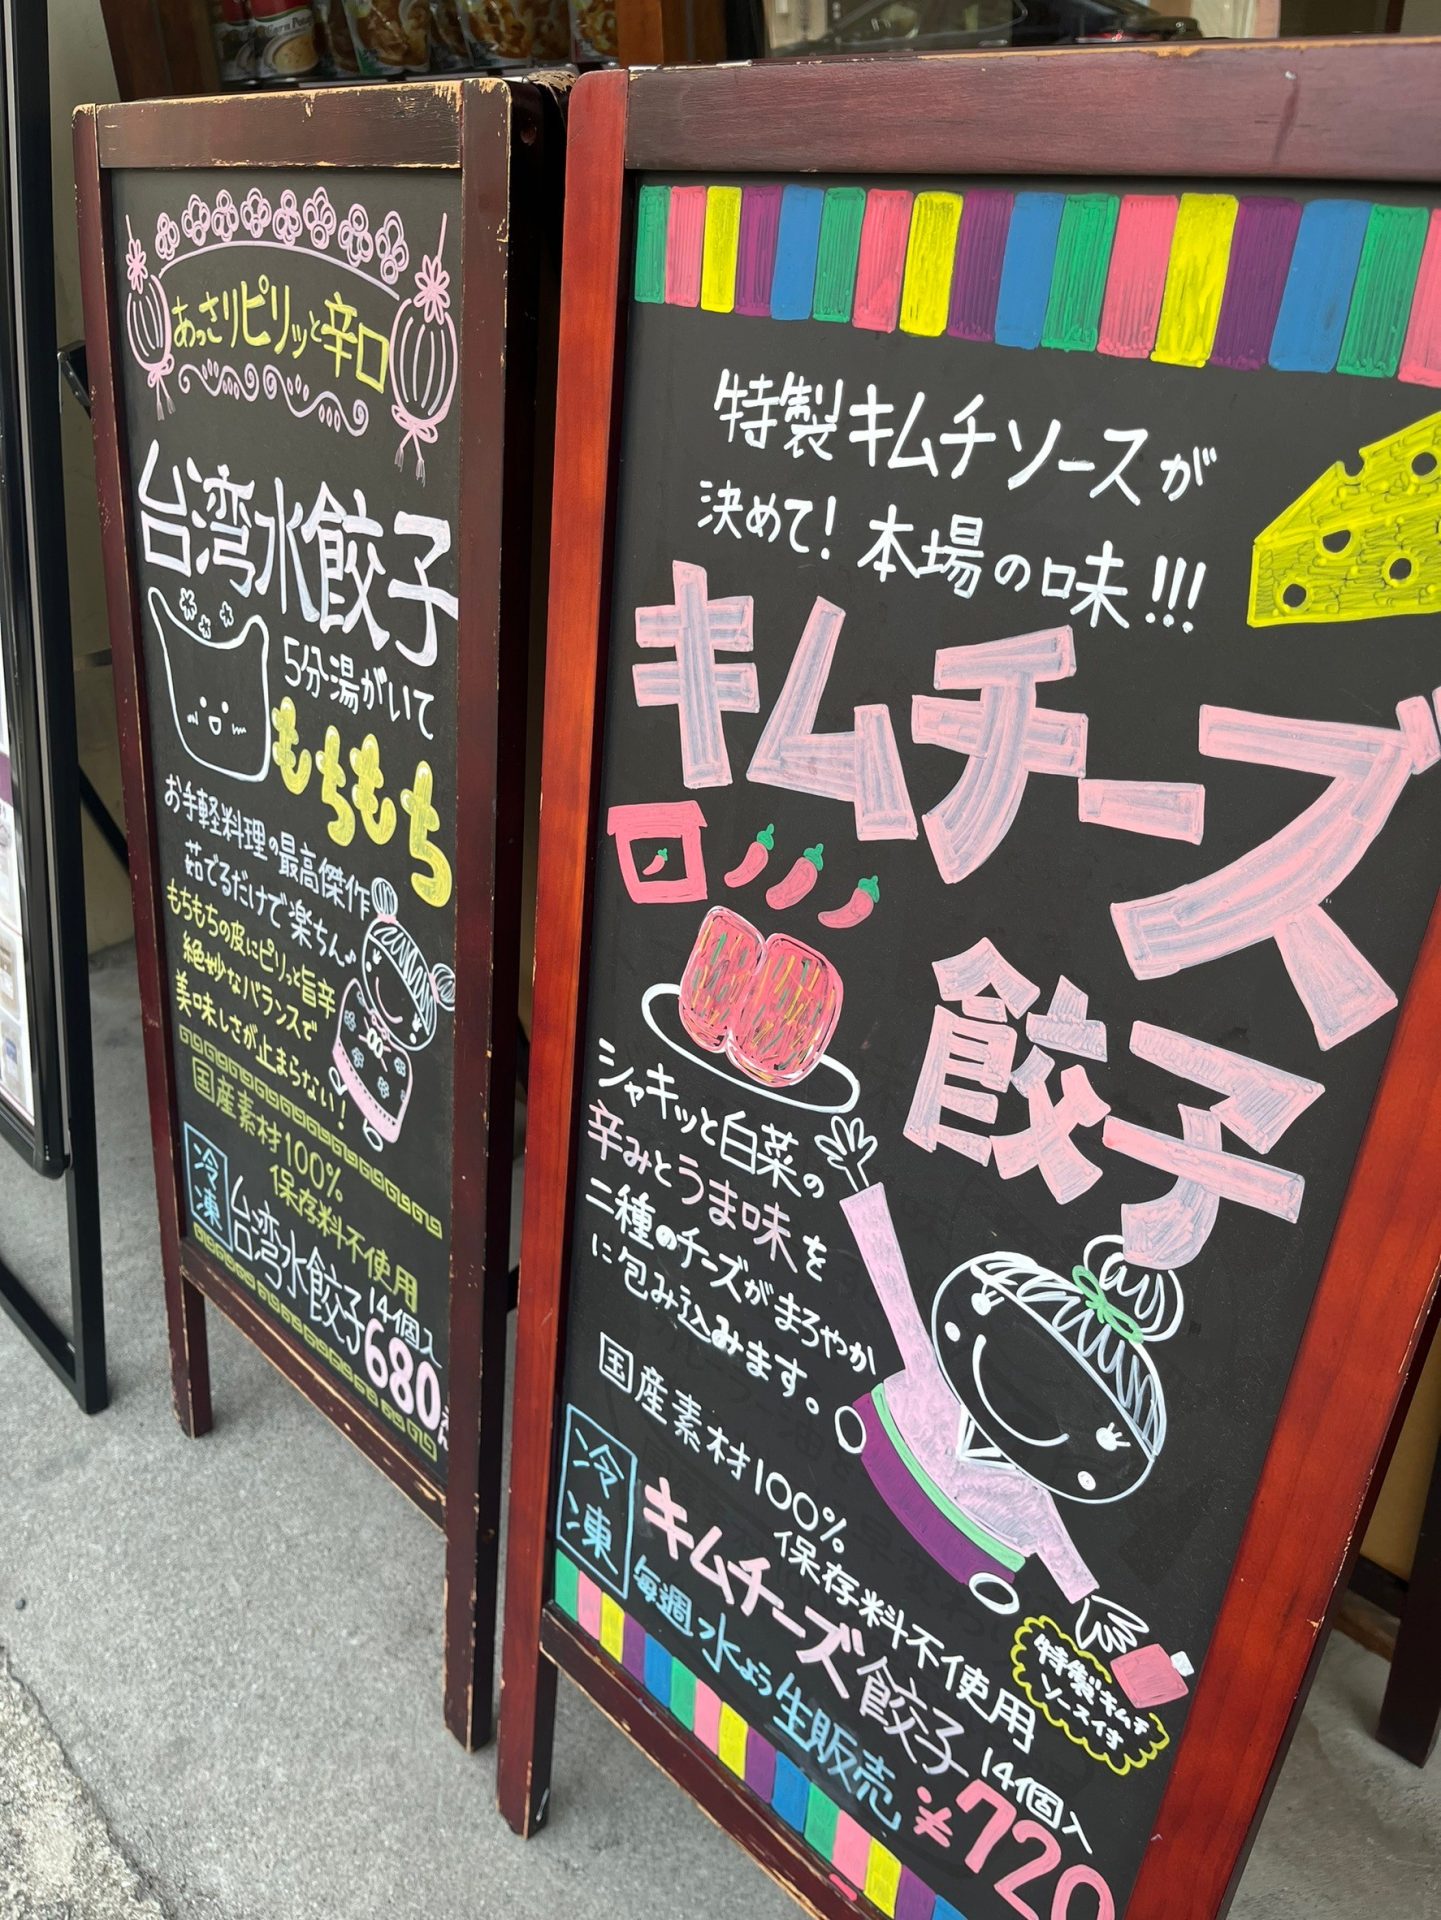 あっさりピリッと辛口
台湾水餃子
5分湯がいて
もちもち
お手軽料理の最高傑作
茹でるだけで楽ちん♪
もちもちの皮にピリッと旨辛
絶妙なバランスで
美味しさが止まらない!
国産素材100%
保存料不使用
冷凍
台湾水餃子14個入
680円
特製キムチソースが
決めて!本場の味!!!
キムチーズ
餃子
シャキッと白菜の
辛みとうま味を
二種のチーズがまろやか
に包み込みます。
国産素材100%
保存料不使用
冷凍
キムチーズ餃子14個入
毎週水よう生販売
¥720
特製キムチ
ソース付